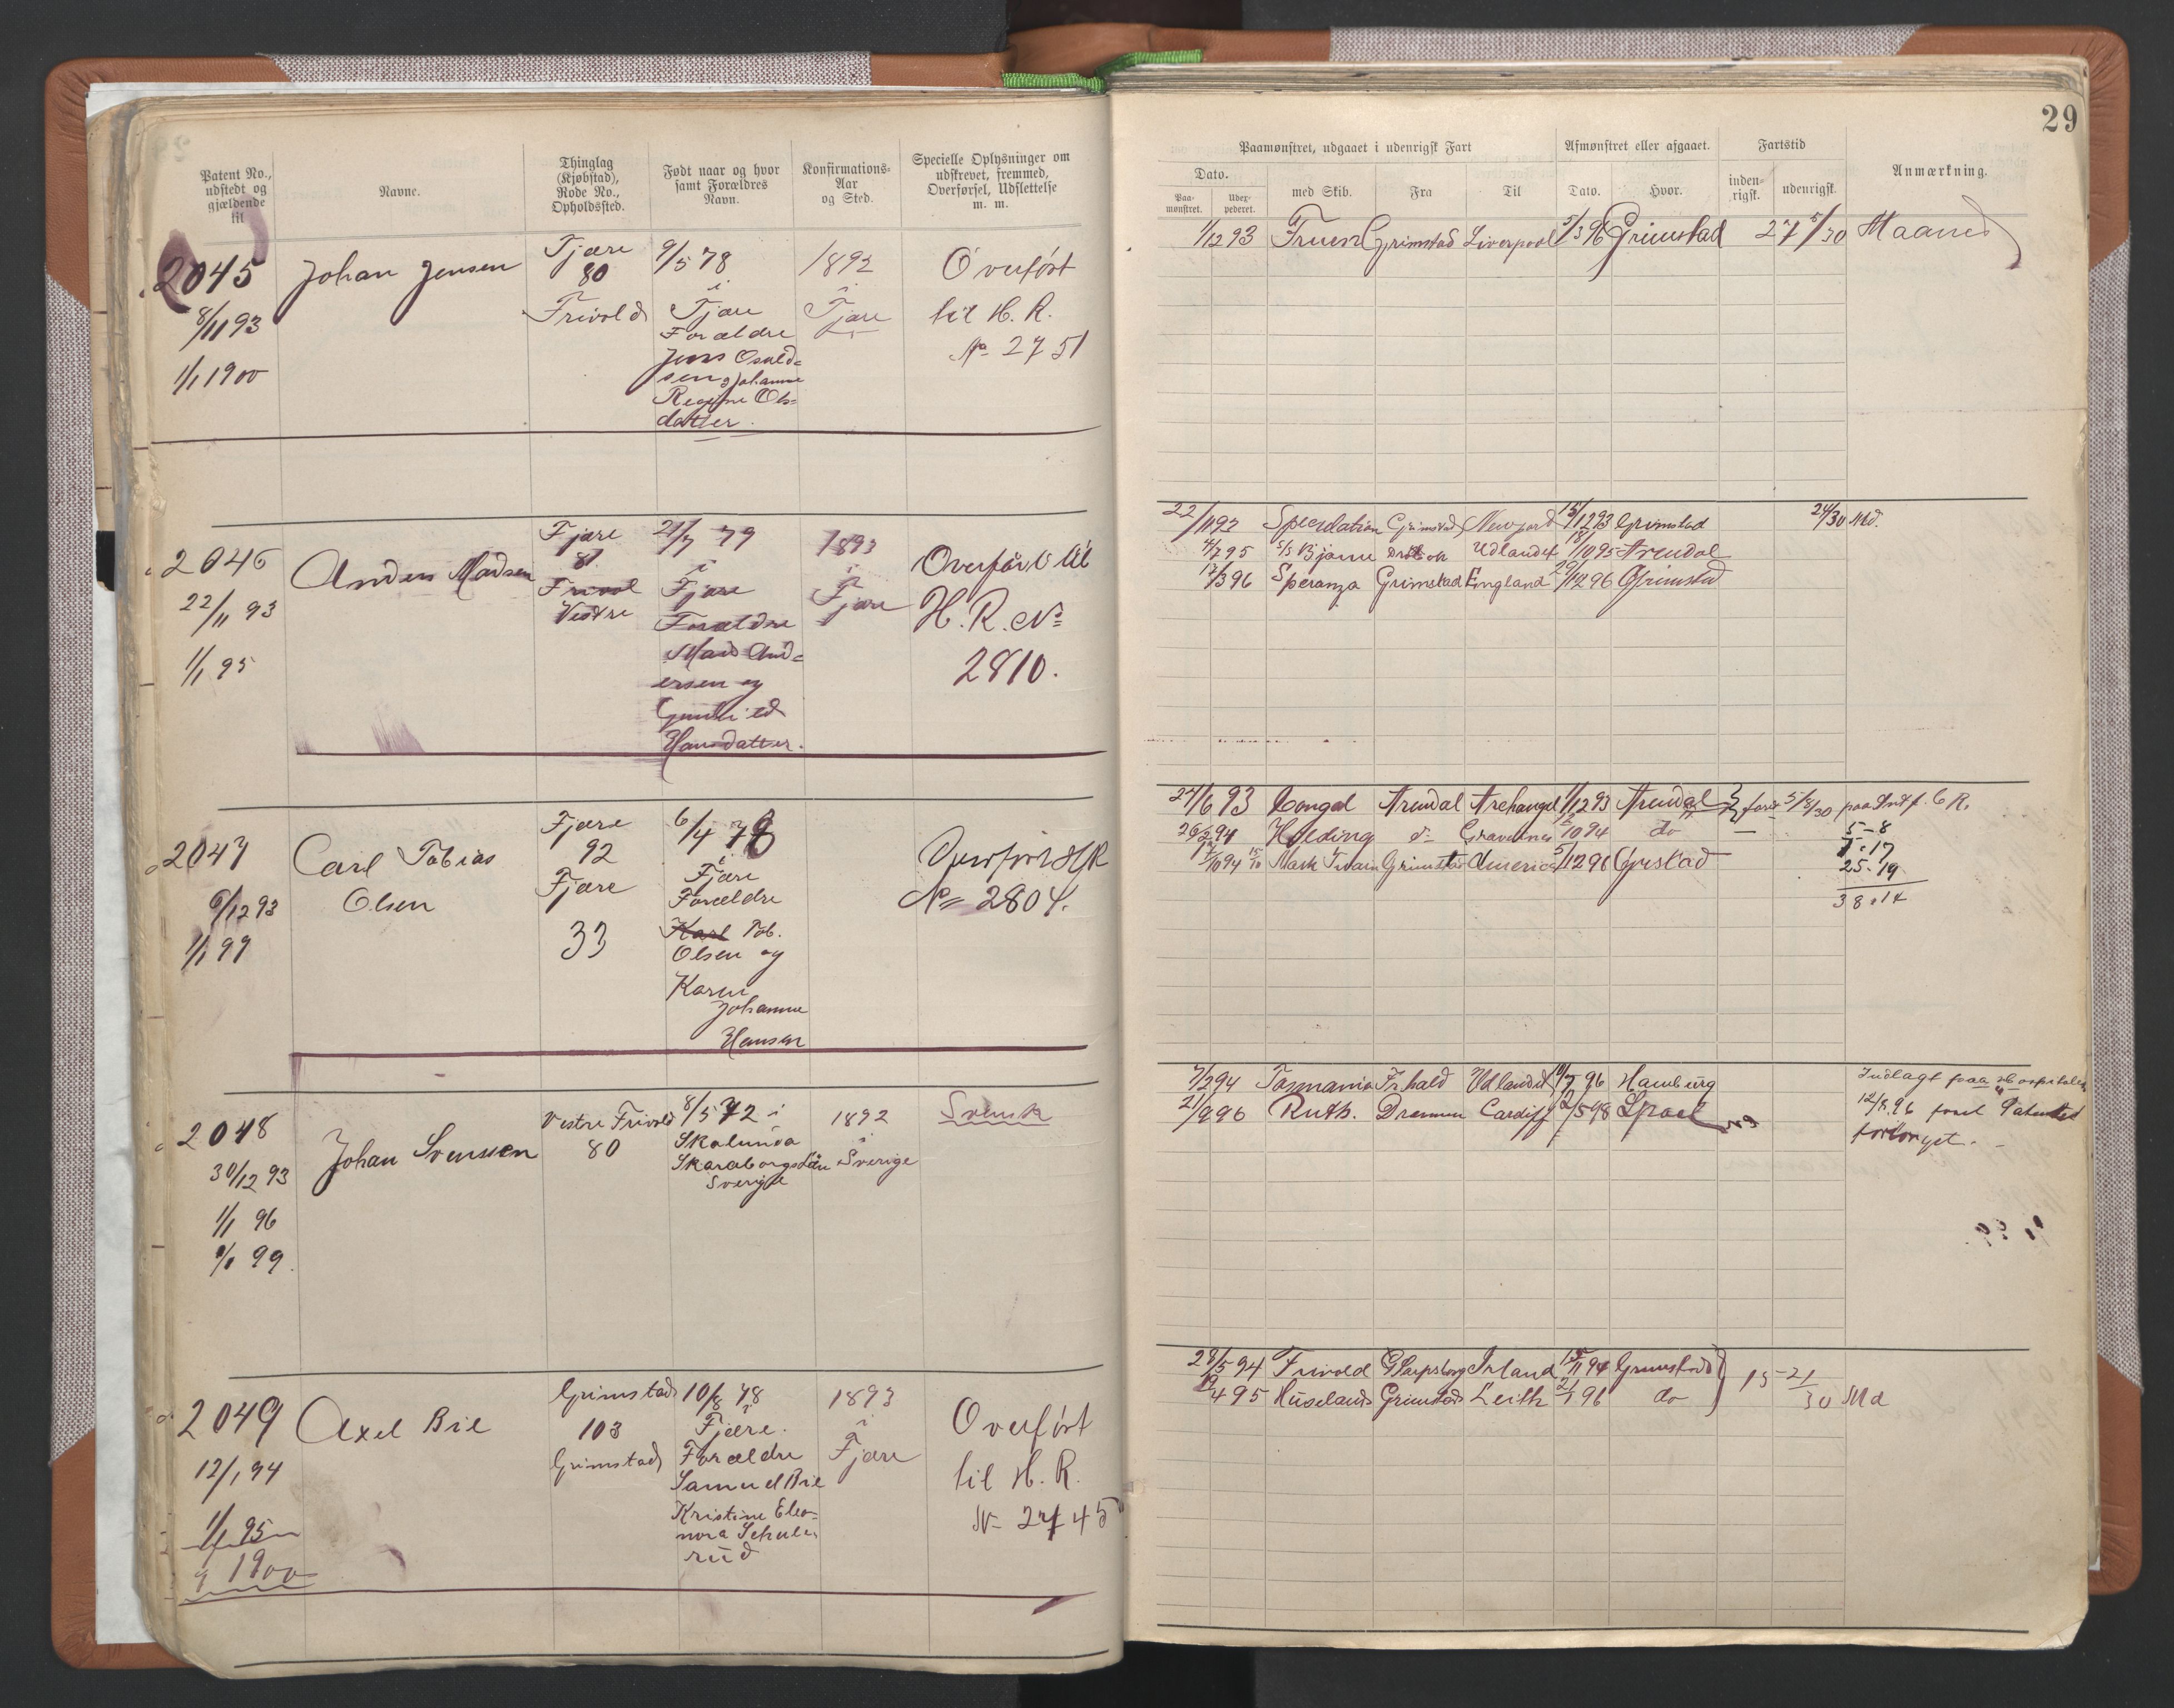 29
Patent No., udstedt og gjældende til
Navne.
Thinglag (Kjøbstad), Rode No., Opholdssted.
Født naar og hvor samt Forældres Navn.
Konfirmations-Aar og Sted.
Specielle Oplysninger om udskrevet, fremmed, Overførsel, Udslettelse m. m.
Paamønstret, udgaaet i udenrigsk Fart
Afmønstret eller afgaaet.
Fartstid
Anmærkning.
Dato.
Paa-mønstret.
Udex-pederet.
med Skib.
Fra
Til
Dato.
Hvor.
inden-rigsk.
udenrigsk.
2045
8/11 93
1/1 1900
Johan Jensen
Fjære
80
Frivold
9/5 78
i
Fjære
Forældre
Jens Osuld=
sen og Johanne
Regine Ols=
datter.
1892
i
Fjære
Overført
til H. R.
No 2751
1/12 93 Fruen Grimstad Liverpool 5/3 96 Grimstad 27 5/30 Maaned
2046
22/11 93
1/1 95
Anders Madsen
Fjære
81
Frivol
Vestre
21/7 79
i
Fjære
Forældre
Mads And=
ersen og
Gunhild
Hansdatter.
1893
i
Fjære
Overført til
H. R. No
2810.
22/11 93 Speculation Grimstad 15/12 93 Grimstad 24/30 Md.
4/7 95 S/S Bjarne Drøbak Udlandet 18/10 95 Arendal
12/3 96 Speranza Grimstad England 29/12 96 Grimstad
2047
6/12 93
1/1 99
Carl Tobias
Olsen
Fjære
92
Fjære
33
6/4 78
i
Fjære
Forældre
Karl Tob.
Olsen og
Karen
Johanne
Hansen
Overført H R
No 2804.
24/6 93 Arendal Archangel 1/12 93 Arendal 5/8/30
26/2 94 Hölding do /10 94 do
/10 94 15/10 Mark Twain Grimstad America 5/12 96 Grstad
5-8
7-17
25-19
38.14
2048
30/12 93
1/1 96
1/1 99.
Johan Svensson
Vestre Frivold
80
8/5 72 i
Skalunda
Skaraborgs Län
Sverige
1892
i
Sverige
Svensk
7/2 94 Tasmania Frhald Udlandet 10/7 96 Hamburg
21/9 96 Ruth. Drammen Cardiff 2/5 98
Indlagt paa Hospitalet
12/8 96 forel Patentet
forlenget.
2049
12/1 94
1/1 95
1/1 1900
Axel Bie
Grimstad
103
Grimstad
10/8 78
i
Fjære.
Forældre
Samuel Bie
Kristine Eleo-
nora Schule
rud
1893
i
Fjære
Overført
til H. R.
No 2745
28/5 94 Frivold Sarpsborg Irland 15/11 94 Grimstad
19/4 95 Huseland Grimstad Leith 2/1 96 do
15-21/30 Md